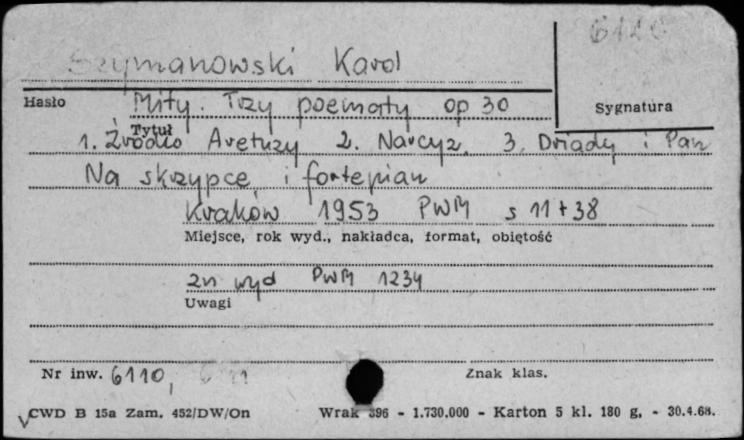 Szymanowski Karol
Hasło Mity. Trzy poematy op 30 Sygnatura
Tytuł
1. Źródło Aretuzy 2. Narcyz, 3. Driady i Pan
Na skrzypce i fortepian
Kraków 1953 PWM s 11+38
Miejsce, rok wyd., nakładca, format, objętość
zn wyd PWM 1234
Uwagi
Nr inw. 6110, Znak klas.
CWD B 15a Zam. 452/DW/On Wrak 396 - 1.730.000 - Karton 5 kl. 180 g. - 30.4.68.